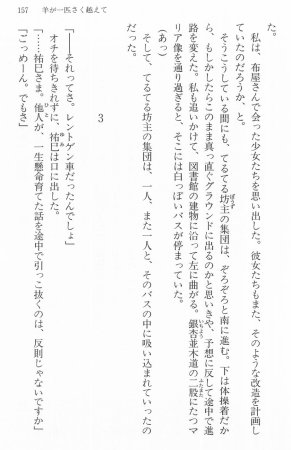 157　羊が一匹さく越えて
た。
　私は、布屋さんで会った少女たちを思い出した。彼女たちもまた、そのような改造を計画し
ていたのだろうか、と。
　そうこうしている間にも、てるてる坊主の集団は、ぞろぞろと南に進む。下は体操着だか
ら、もしかしたらこのまま真っ直ぐグラウンドに出るのかと思いきや、予想に反して途中で進
路を変えた。私も追いかけて、図書館の建物に沿って左に曲がる。銀杏並木道の二股にたつマ
リア像を通り過ぎると、そこには白っぽいバスが停まっていた。
（あっ）
　そして、てるてる坊主の集団は、一人、また一人と、そのバスの中に吸い込まれていったの
だった。
3
「――それってさ。レントゲン車だったんでしょ」
　オチを待ちきれずに、祐巳は口に出した。
「……祐巳さま。他人が、一生懸命育てた話を途中で引っこ抜くのは、反則じゃないですか」
「ごっめーん。でもさ」